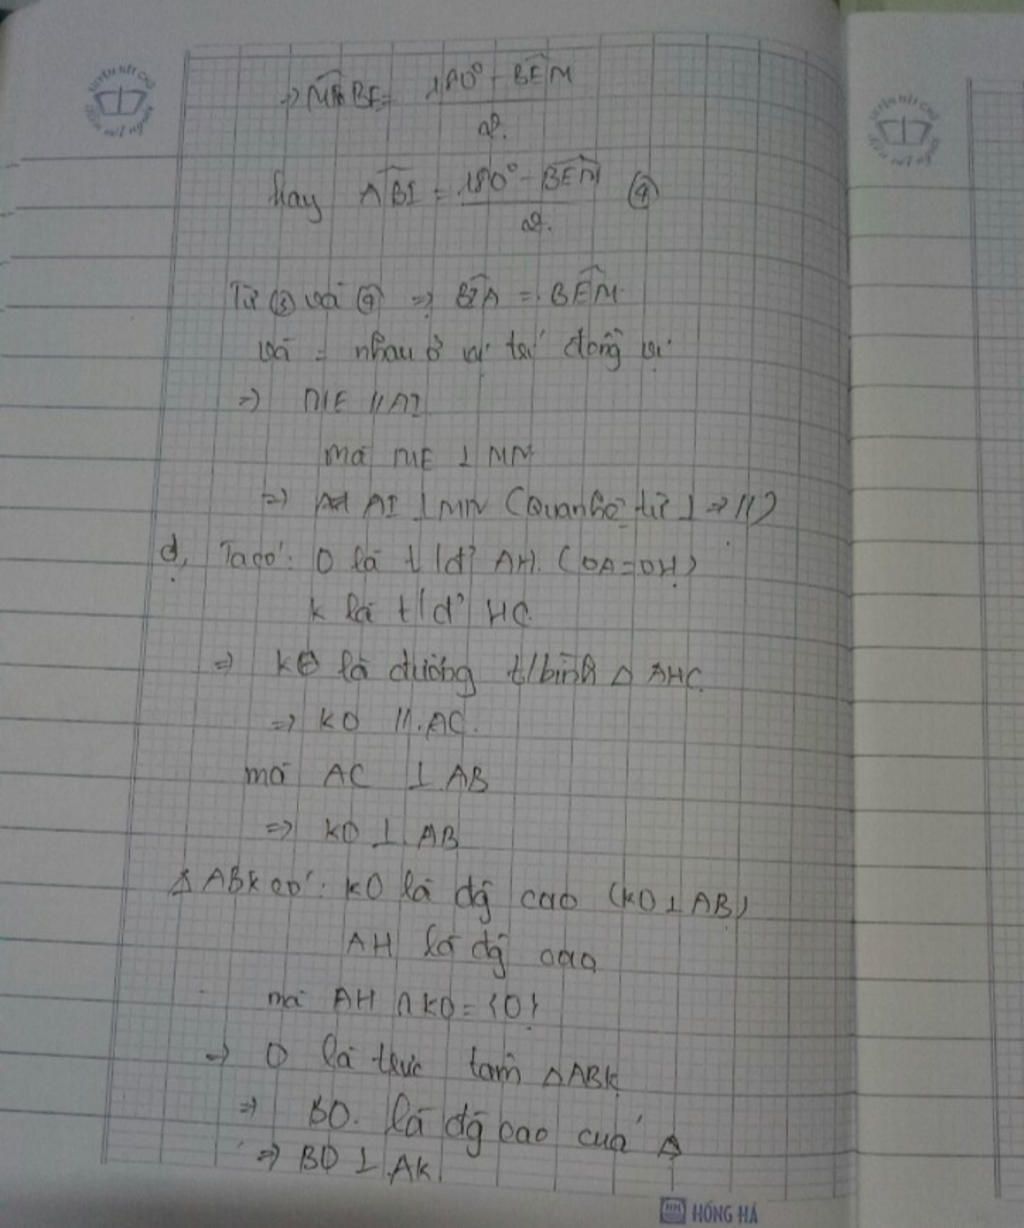 => MBE = 180° - BEM / 2
hay ABI = 180° - BEM / 2 (4)
Từ (3) và (4) => BIA = BEM
và = nhau ở vị trí đồng vị
=> ME // AI
mà ME ⊥ MN
=> AI ⊥ MN (Quan hệ từ ⊥ → //)
d, Ta có: O là t/đ AH (OA = OH)
K là t/đ HC
=> KO là đường t/bình Δ AHC
=> KO // AC.
mà AC ⊥ AB
=> KO ⊥ AB
Δ ABK có: KO là đg cao (KO ⊥ AB)
AH là đg cao
mà AH ∩ KO = {O}
=> O là trực tâm Δ ABK
=> BO. là đg cao của Δ
=> BO ⊥ AK
HH HỒNG HÀ